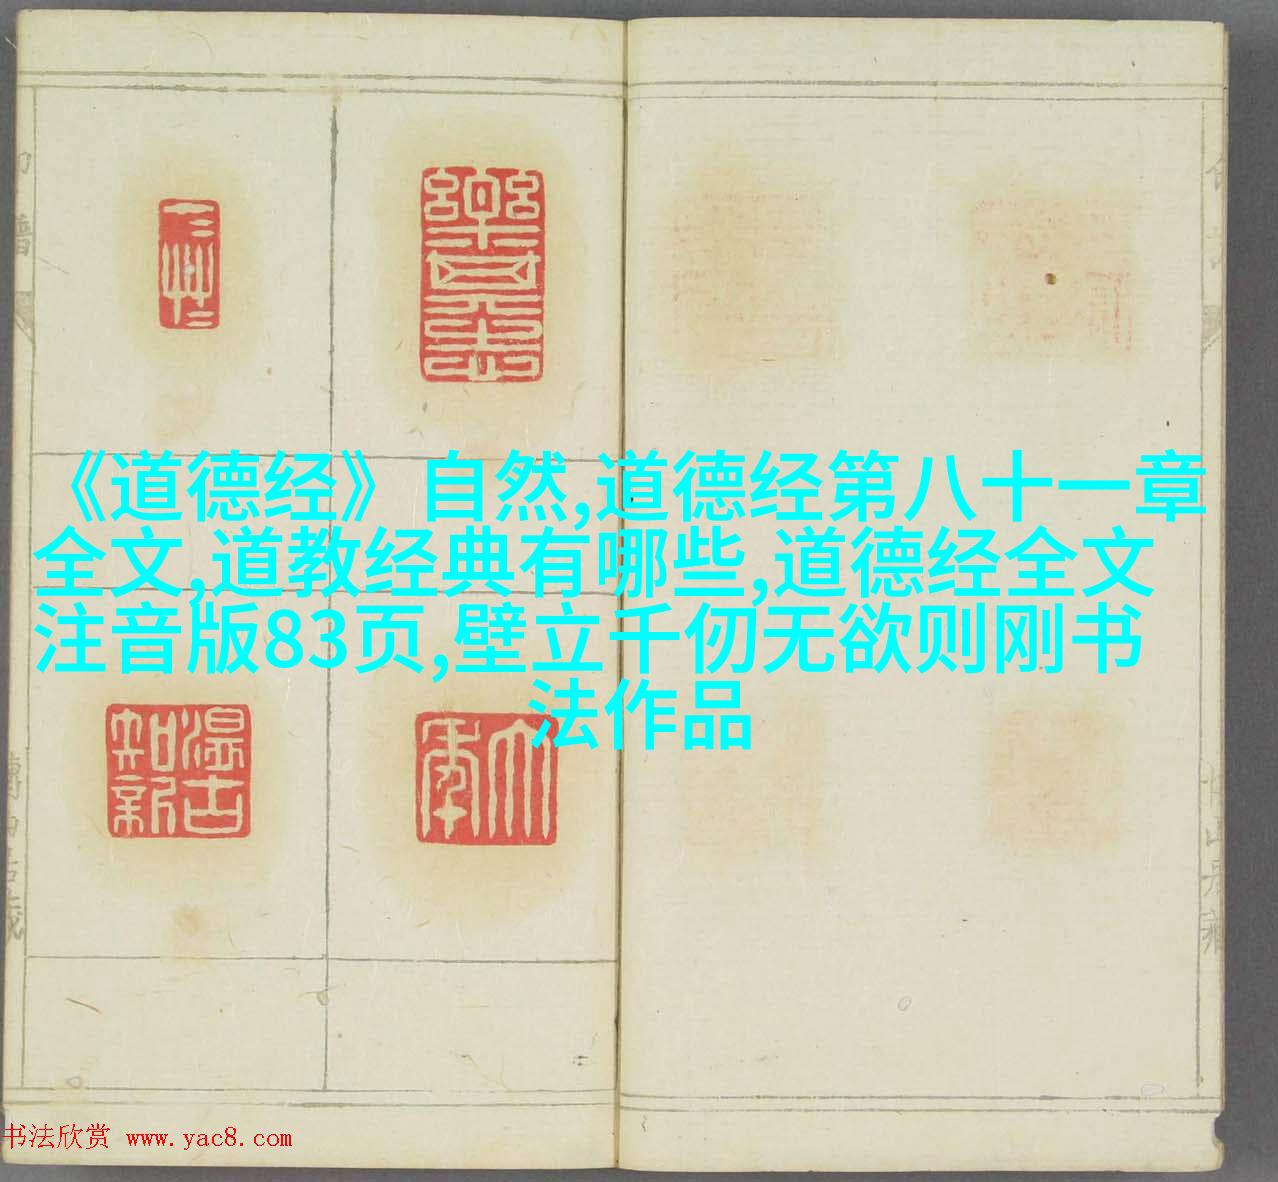 《道德经》自然,道德经第八十一章
全文,道教经典有哪些,道德经全文
注音版83页,壁立千仞无欲则刚书
法作品
温故
知新
大年
书法欣赏 www.yac8.com